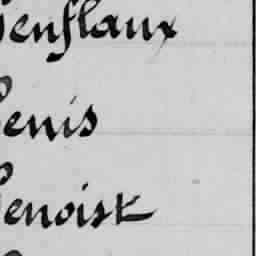 Genflaux
Genis
Genoist